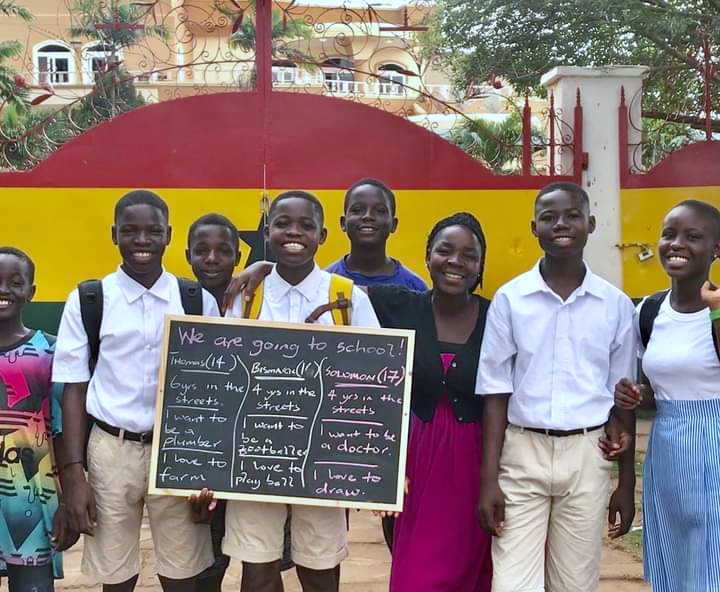 We are going to school!
Thomas (14)
6yrs in the
streets.
I want to
be a
plumber
I love to
farm
Bismark (16)
4 yrs in the
streets
I want to
be a
footballer
I love to
play ball
SOLOMON (17)
4 yrs in the
streets
I want to be
a doctor.
I love to
draw.